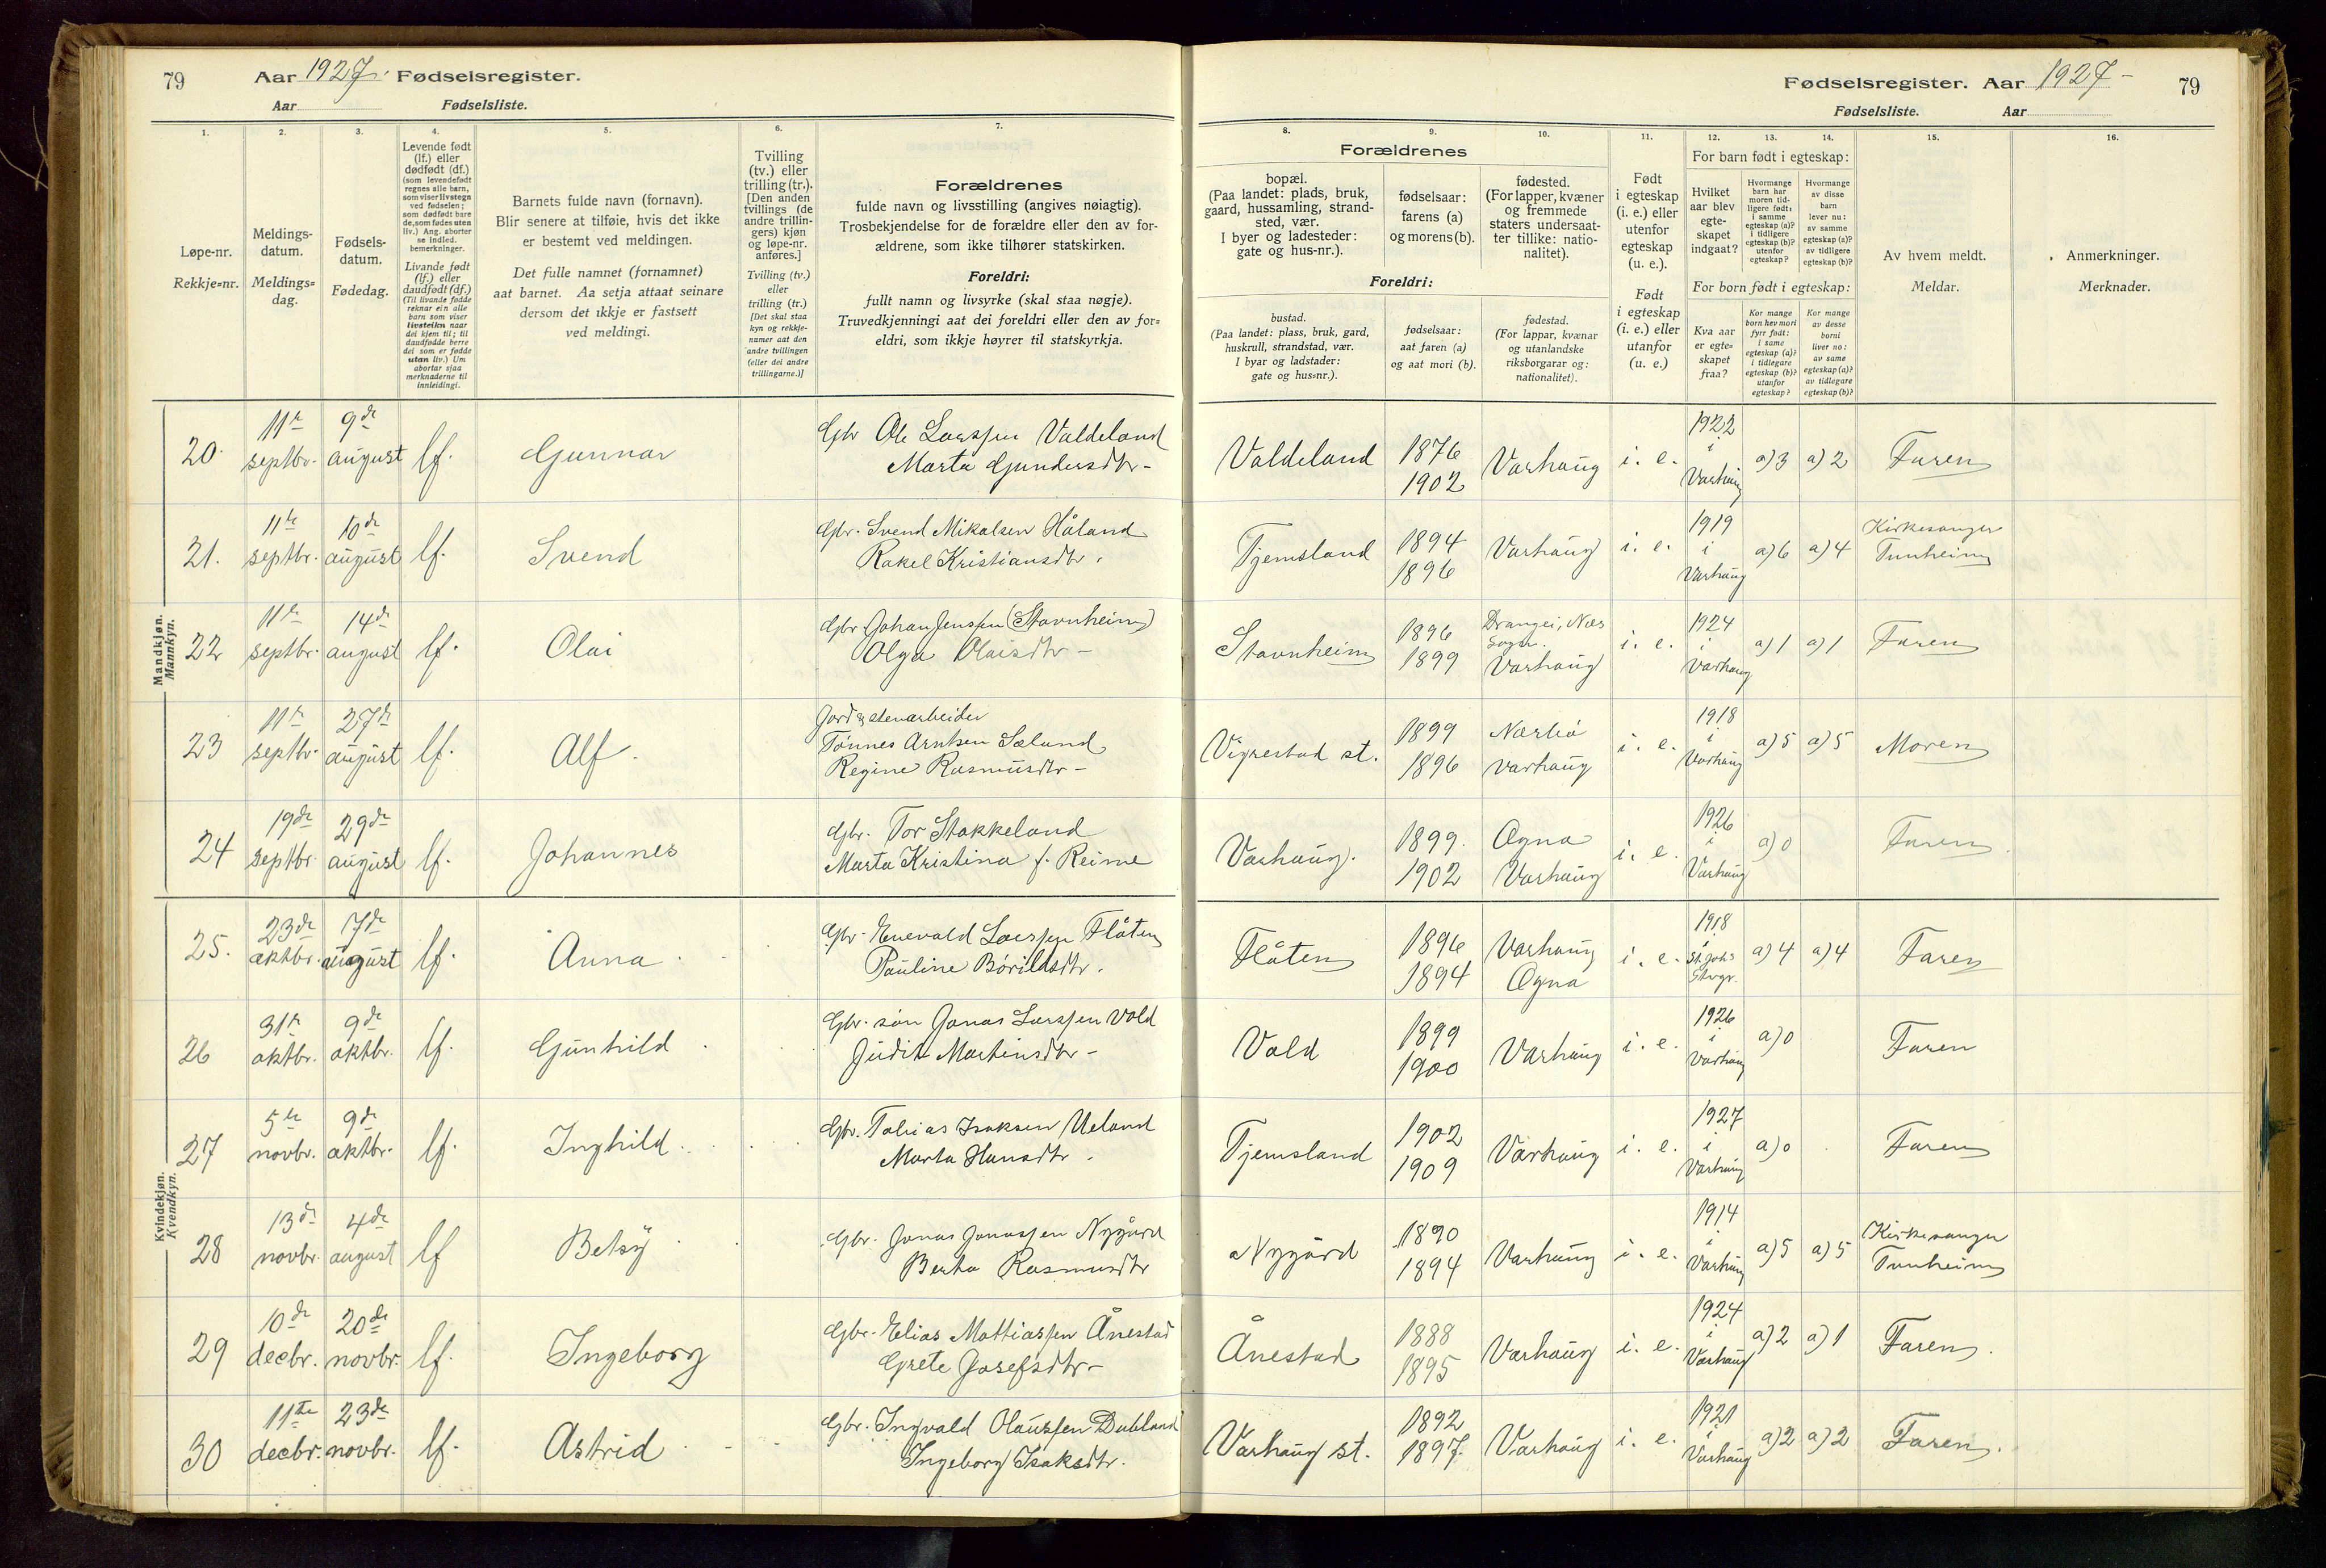 79 Aar 1927. Fødselsregister.
Aar Fødselsliste.
1. 2. 3. 4. 5. 6. 7.
Løpe-nr.
Rekkje=nr.
Meldings-
datum.
Meldings=
dag.
Fødsels-
datum.
Fødedag.
Levende født
(lf.) eller
dødfødt (df.)
(som levendefødt
regnes alle barn,
som viser livstegn
ved fødselen;
som dødfødt bare
de, som fødes uten
liv.) Ang. aborter
se indled.
bemerkninger.
Livande født
(lf.) eller
daudfødt (df.)
(Til livande fødde
reknar ein alle
barn som viser
livsteikn naar
dei kjem til; til
daudfødde berre
dei som er fødde
utan liv.) Um
abortar sjaa
merknaderne til
innleidingi.
Barnets fulde navn (fornavn).
Blir senere at tilføie, hvis det ikke
er bestemt ved meldingen.
Det fulle namnet (fornamnet)
aat barnet. Aa setja attaat seinare
dersom det ikkje er fastsett
ved meldingi.
Tvilling
(tv.) eller
trilling (tr.).
[Den anden
tvillings (de
andre trillin-
gers) kjøn
og løpe-nr.
anføres.]
Tvilling (tv.)
eller
trilling (tr.)
[Det skal staa
kyn og rekkje-
numer aat den
andre tvillingen
(eller dei andre
trillingarne.)]
Forældrenes
fulde navn og livsstilling (angives nøiagtig).
Trosbekjendelse for de forældre eller den av for-
ældrene, som ikke tilhører statskirken.
Foreldri:
fullt namn og livsyrke (skal staa nøgje).
Truvedkjenningi aat dei foreldri eller den av for=
eldri, som ikkje høyrer til statskyrkja.
Mandkjøn.
Mannkyn.
20. 11te septbr. 9de august lf. Gunnar Gbr Ole Larssen Valdeland
Marta Gundersdtr-
21. 11te septbr. 10de august lf. Svend Gbr. Svend Mikalsen Håland
Rakel Kristiansdtr.
22 11te septbr. 14de august lf. Olai Gbr. Johan Jenssen (Stavnheim)
Olga Olaisdtr-
23 11te septbr. 27de august lf. Alf. Jord & stenarbeider
Tønnes Arntsen Sæland
Regine Rasmusdtr-
24 19de septbr. 29de august lf. Johannes Gbr. Tor Stokkeland
Marta Kristina f. Reime
Kvindekjøn.
Kvendkyn.
25. 23de oktbr. 17de august lf. Anna Gbr. Enevald Larssen Flåten
Pauline Bórildsdtr.
26 31te oktbr. 9de oktbr. lf. Gunhild Gbr. søn Jonas Larssen Vold
Judit Martinsdtr-
27 5te novbr. 9de oktbr. lf. Inghild Gbr. Tobias Isaksen Ueland
Marta Hansdtr.
28 13de novbr. 4de august lf Betsy Gbr. Jonas Jonassen Nygård
Berta Rasmusdtr
29 10de decbr. 20de novbr. lf. Ingeborg Gbr. Elias Mattiassen Ånestad
Grete Josefsdtr-
30 11te decbr. 23de novbr. lf. Astrid Gbr. Ingvald Olaussen Dubland
Ingeborg Isaksdtr.
Fødselsregister. Aar 1927- 79
Fødselsliste. Aar
8. 9. 10. 11. 12. 13. 14. 15. 16.
Forældrenes
bopæl.
(Paa landet: plads, bruk,
gaard, hussamling, strand-
sted, vær.
I byer og ladesteder:
gate og hus-nr.).
fødselsaar:
farens (a)
og morens (b).
fødested.
(For lapper, kvæner
og fremmede
staters undersaat-
ter tillike: natio-
nalitet).
Foreldri:
bustad.
(Paa landet: plass, bruk, gard,
huskrull, strandstad, vær.
I byar og ladstader:
gate og hus=nr.).
fødselsaar:
aat faren (a)
og aat mori (b).
fødestad.
(For lappar, kvænar
og utanlandske
riksborgarar og:
nationalitet).
Født
i egteskap
(i. e.) eller
utenfor
egteskap
(u. e.).
Født
i egteskap
(i. e.) eller
utanfor
(u. e.)
For barn født i egteskap:
Hvilket
aar blev
egte-
skapet
indgaat?
Hvormange
barn har
moren tid-
ligere født:
i samme
egteskap (a)?
i tidligere
egteskap (b)?
utenfor
egteskap?
Hvormange
av disse
barn
lever nu:
av samme
egteskap (a)?
av tidligere
egteskap (b)?
For born født i egteskap:
Kva aar
er egte=
skapet
fraa?
Kor mange
born hev mori
fyrr født:
i same
egteskap (a)?
i tidlegare
egteskap (b)?
utanfor
egteskap?
Kor mange
av desse
borni
liver no:
av same
egteskap (a)?
av tidlegare
egteskap (b)?
Av hvem meldt.
Meldar.
Anmerkninger.
Merknader.
Valdeland 1876 1902 Varhaug i. e. 1922 i Varhaug a) 3 a) 2 Faren
Tjemsland 1894 1896 Varhaug i. e. 1919 i Varhaug a) 6 a) 4 Kirkesanger Tunheim
Stavnheim 1896 1899 Drangei, Nes Sogn. Varhaug i. e. 1924 i Varhaug a) 1 a) 1 Faren
Vigrestad st. 1899 1896 Nærbø Varhaug i. e. 1918 i Varhaug a) 5 a) 5 Moren
Varhaug. 1899. 1902 Ogna Varhaug i. e. 1926 i Varhaug a) 0 Faren.
Flåten 1896 1894 Varhaug Ogna i. e. 1918 i St. Johs Stvgr. a) 4 a) 4 Faren
Vold 1899 1900 Varhaug i. e. 1926 i Varhaug a) 0 Faren
Tjemsland 1902 1909 Varhaug i. e. 1927 i Varhaug a) 0 Faren
Nygård 1890 1894 Varhaug i. e. 1914 i Varhaug a) 5 a) 5 Kirkesanger Tunheim
Ånestad 1888 1895 Varhaug i. e. 1924 i Varhaug a) 2 a) 1 Faren.
Varhaug st. 1892 1897. Varhaug i. e. 1921 i Varhaug a) 2 a) 2 Faren.